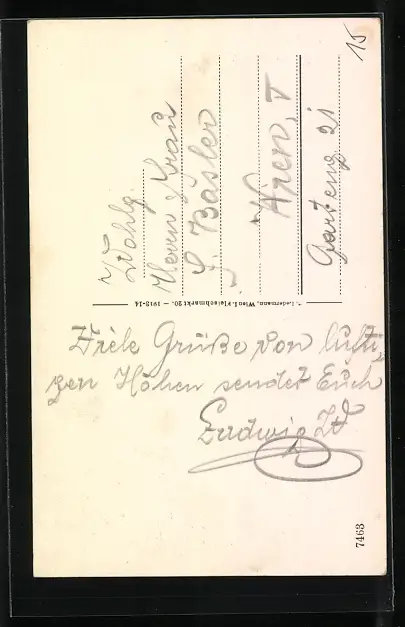 15
Wohlg.
Herrn u Frau
L. Basler
Wien, V
Garteng. 21
Ledermann, Wien I., Fleischmarkt 20. — 1913-14
Viele Grüße von lufti,
gen Höhen sendet Euch
Ludwig
7463